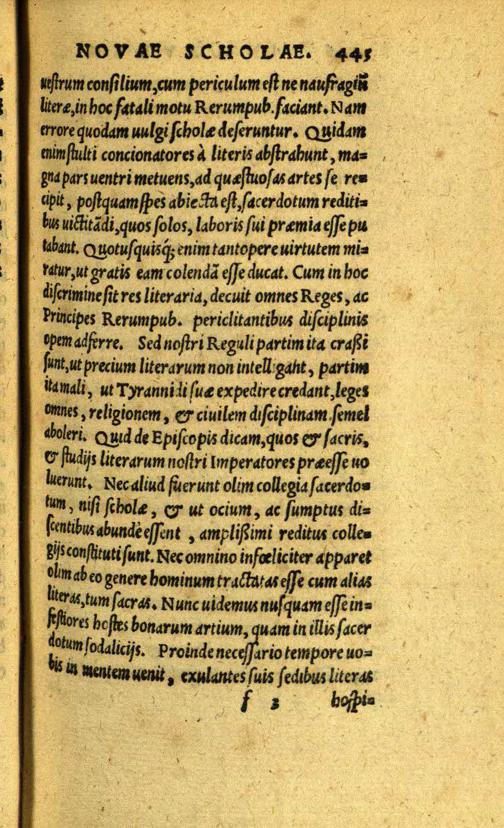 NOVAE SCHOLAE. 445
uestrum consilium, cum periculum est ne naufragiũ
literæ, in hoc fatali motu Rerumpub. faciant. Nam
errore quodam uulgi scholæ deseruntur. Quidam
enim stulti concionatores à literis abstrahunt, ma=
gna pars uentri metuens, ad quæstuosas artes se re=
cipit, postquam spes abiecta est, sacerdotum rediti=
bus uictitãdi, quos solos, laboris sui præmia esse pu
tabant. Quotusquisq; enim tantopere uirtutem mi=
ratur, ut gratis eam colendã esse ducat. Cum in hoc
discrimine sit res literaria, decuit omnes Reges, ac
Principes Rerumpub. periclitantibus disciplinis
opem adferre. Sed nostri Reguli partim ita craßi
sunt, ut precium literarum non intelligãt, partim
ita mali, ut Tyrannidi suæ expedire credant, leges
omnes, religionem, & ciuilem disciplinam semel
aboleri. Quid de Episcopis dicam, quos & sacris,
& studijs literarum nostri Imperatores præesse uo
luerunt. Nec aliud fuerunt olim collegia sacerdo=
tum, nisi scholæ, & ut ocium, ac sumptus di=
scentibus abundè essent, amplißimi reditus colle=
gijs constituti sunt. Nec omnino infœliciter apparet
olim ab eo genere hominum tractatas esse cum alias
literas, tum sacras. Nunc uidemus nusquam esse in=
festiores hostes bonarum artium, quam in illis sacer
dotum sodalicijs. Proinde necessario tempore uo=
bis in mentem uenit, exulantes suis sedibus literas
f 3 hospi=